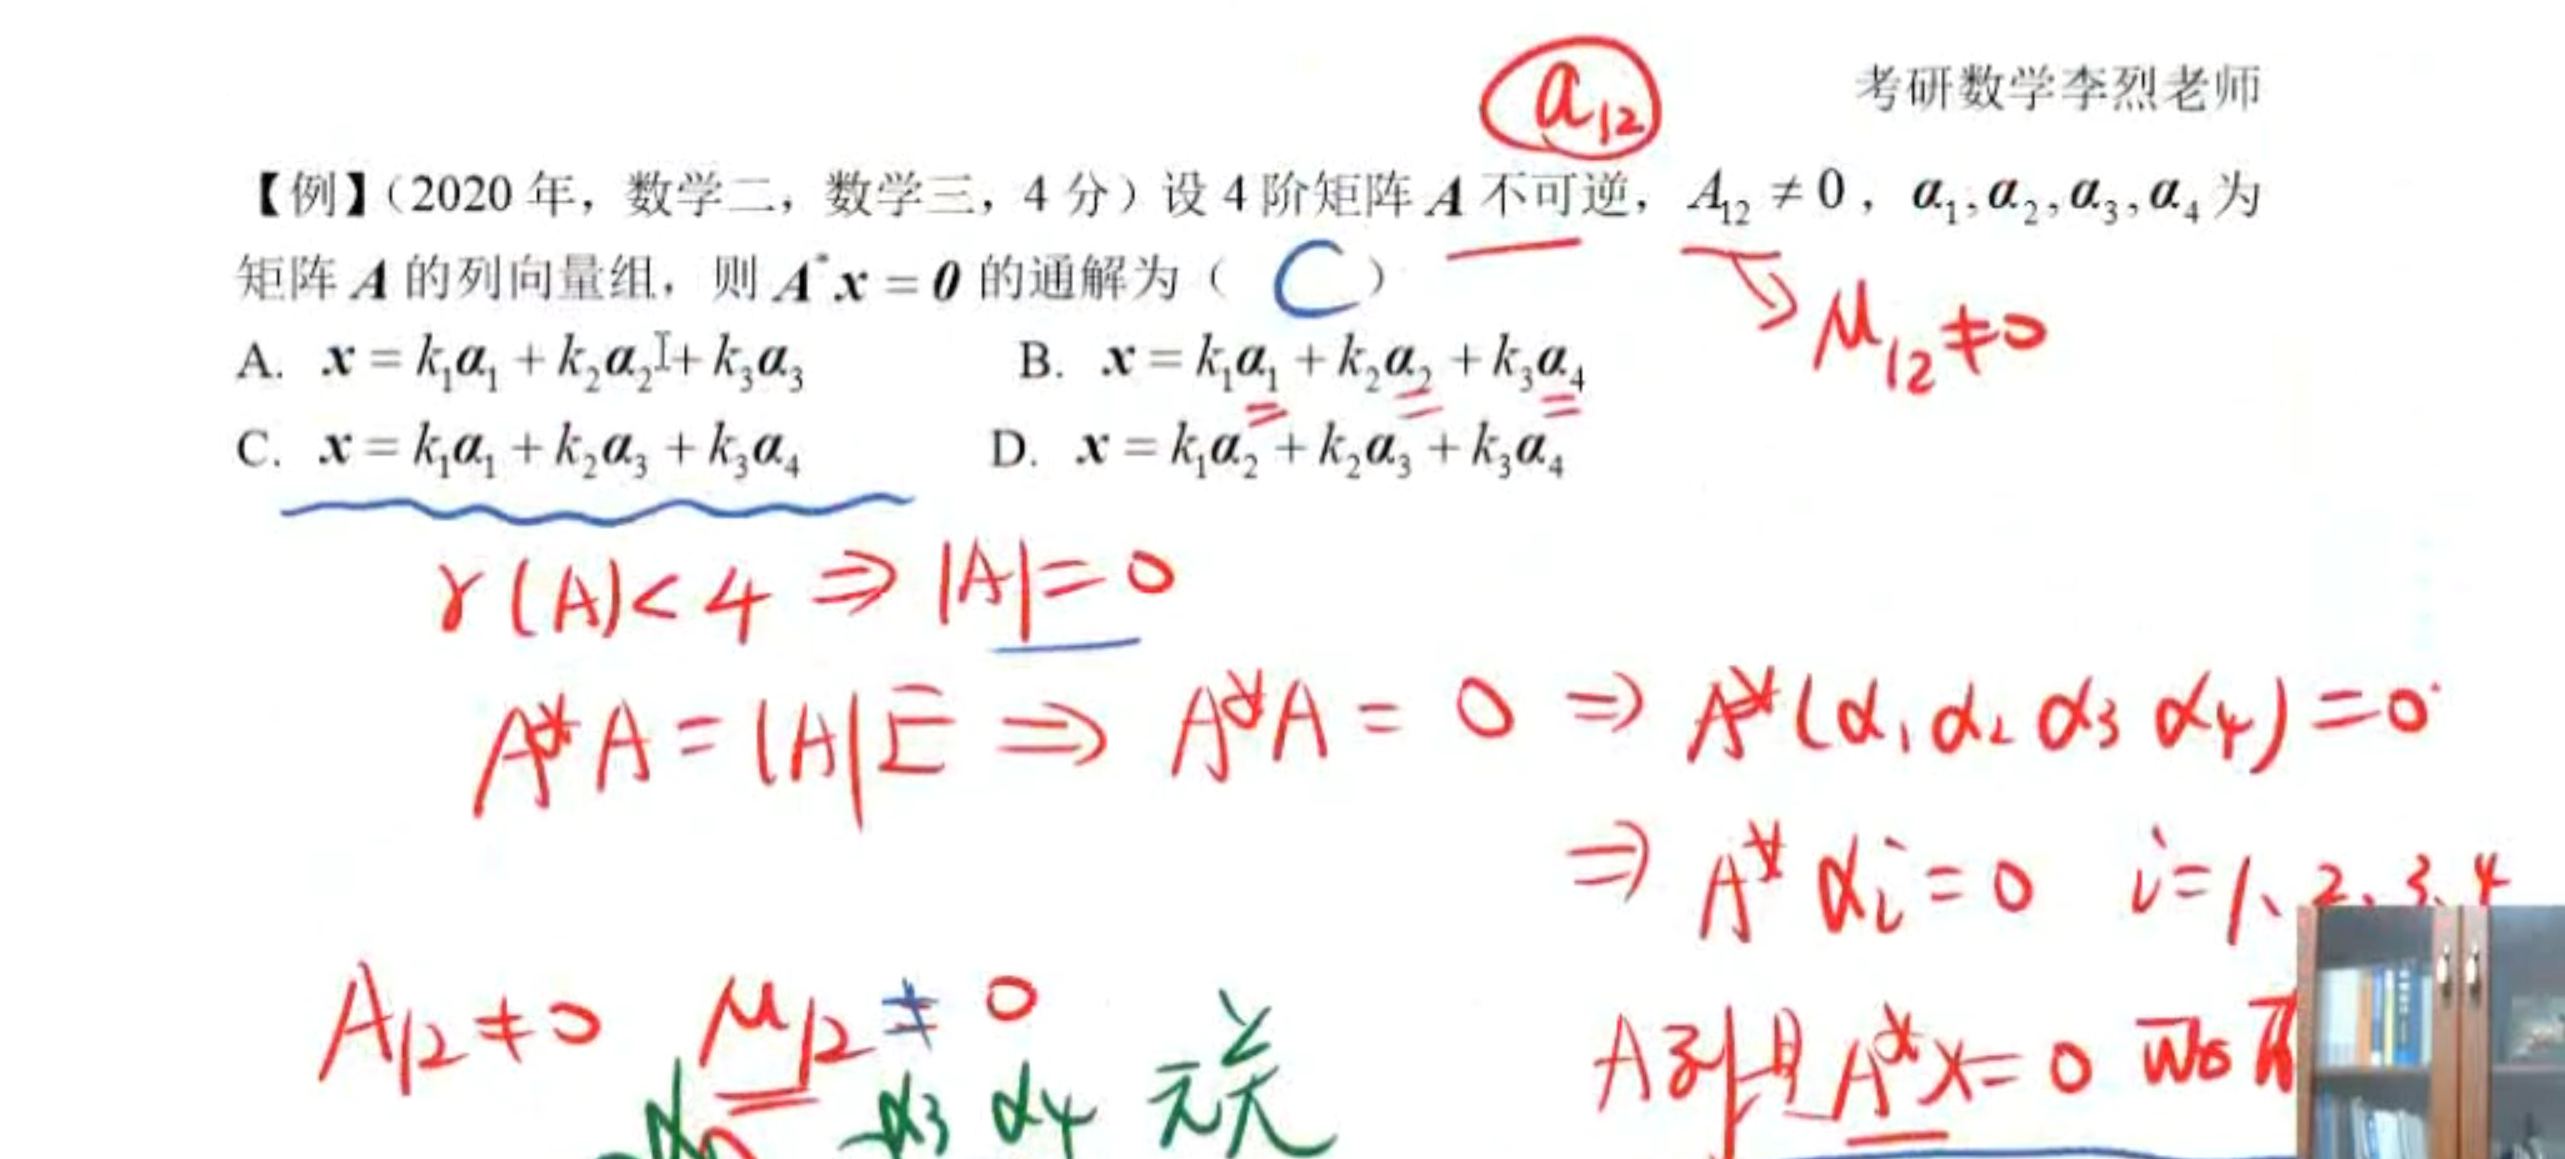 a₁₂
考研数学李烈老师
【例】(2020 年，数学二，数学三，4 分) 设 4 阶矩阵 A 不可逆，A₁₂ ≠ 0，α₁, α₂, α₃, α₄ 为
矩阵 A 的列向量组，则 A*x = 0 的通解为（ C ）
M₁₂ ≠ 0
A. x = k₁α₁ + k₂α₂ + k₃α₃ B. x = k₁α₁ + k₂α₂ + k₃α₄
C. x = k₁α₁ + k₂α₃ + k₃α₄ D. x = k₁α₂ + k₂α₃ + k₃α₄
r(A) < 4 ⇒ |A| = 0
A*A = |A|E ⇒ A*A = 0 ⇒ A*(α₁ α₂ α₃ α₄) = 0
⇒ A*αi = 0 i = 1、2、3、4
A₁₂ ≠ 0 M₁₂ ≠ 0
A列是A*x = 0 的
α₃ α₄ 无关